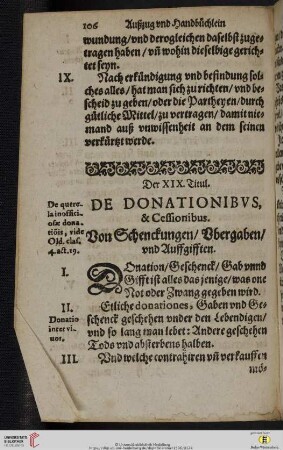 106 Außzug vnd Handbüchlein
wundung/vnd derogleichen daselbst zuge-
tragen haben/vñ wohin dieselbige gerich-
tet seyn.
IX. Nach erkündigung vnd befindung sol-
ches alles/hat man sich zu richten/vnd be-
scheid zu geben/oder die Partheyen/durch
gütliche Mittel/zu vertragen/damit nie-
mand auß vnwissenheit an dem seinen
verkürtzt werde.
Der XIX. Titul.
DE DONATIONIBVS,
& Cessionibus.
Von Schenckungen/Vbergaben/
vnd Auffgifften.
De quere-
la inoffici-
osæ dona-
tiõis, vide
Old. clas.
4. act. 19.
I. DOnation/Geschenck/Gab vnnd
Gifft ist alles das jenige/was one
Not oder Zwang gegeben wird.
II. Etliche donationes, Gaben vnd Ge-
schenck geschehen vnder den Lebendigen/
vnd so lang man lebet: Andere geschehen
Tods vnd absterbens halben.
Donatio
inter vi-
uos.
III. Vnd welche contrahiren vñ verkauffen
mö-
UNIVERSITÄTS-
BIBLIOTHEK
HEIDELBERG